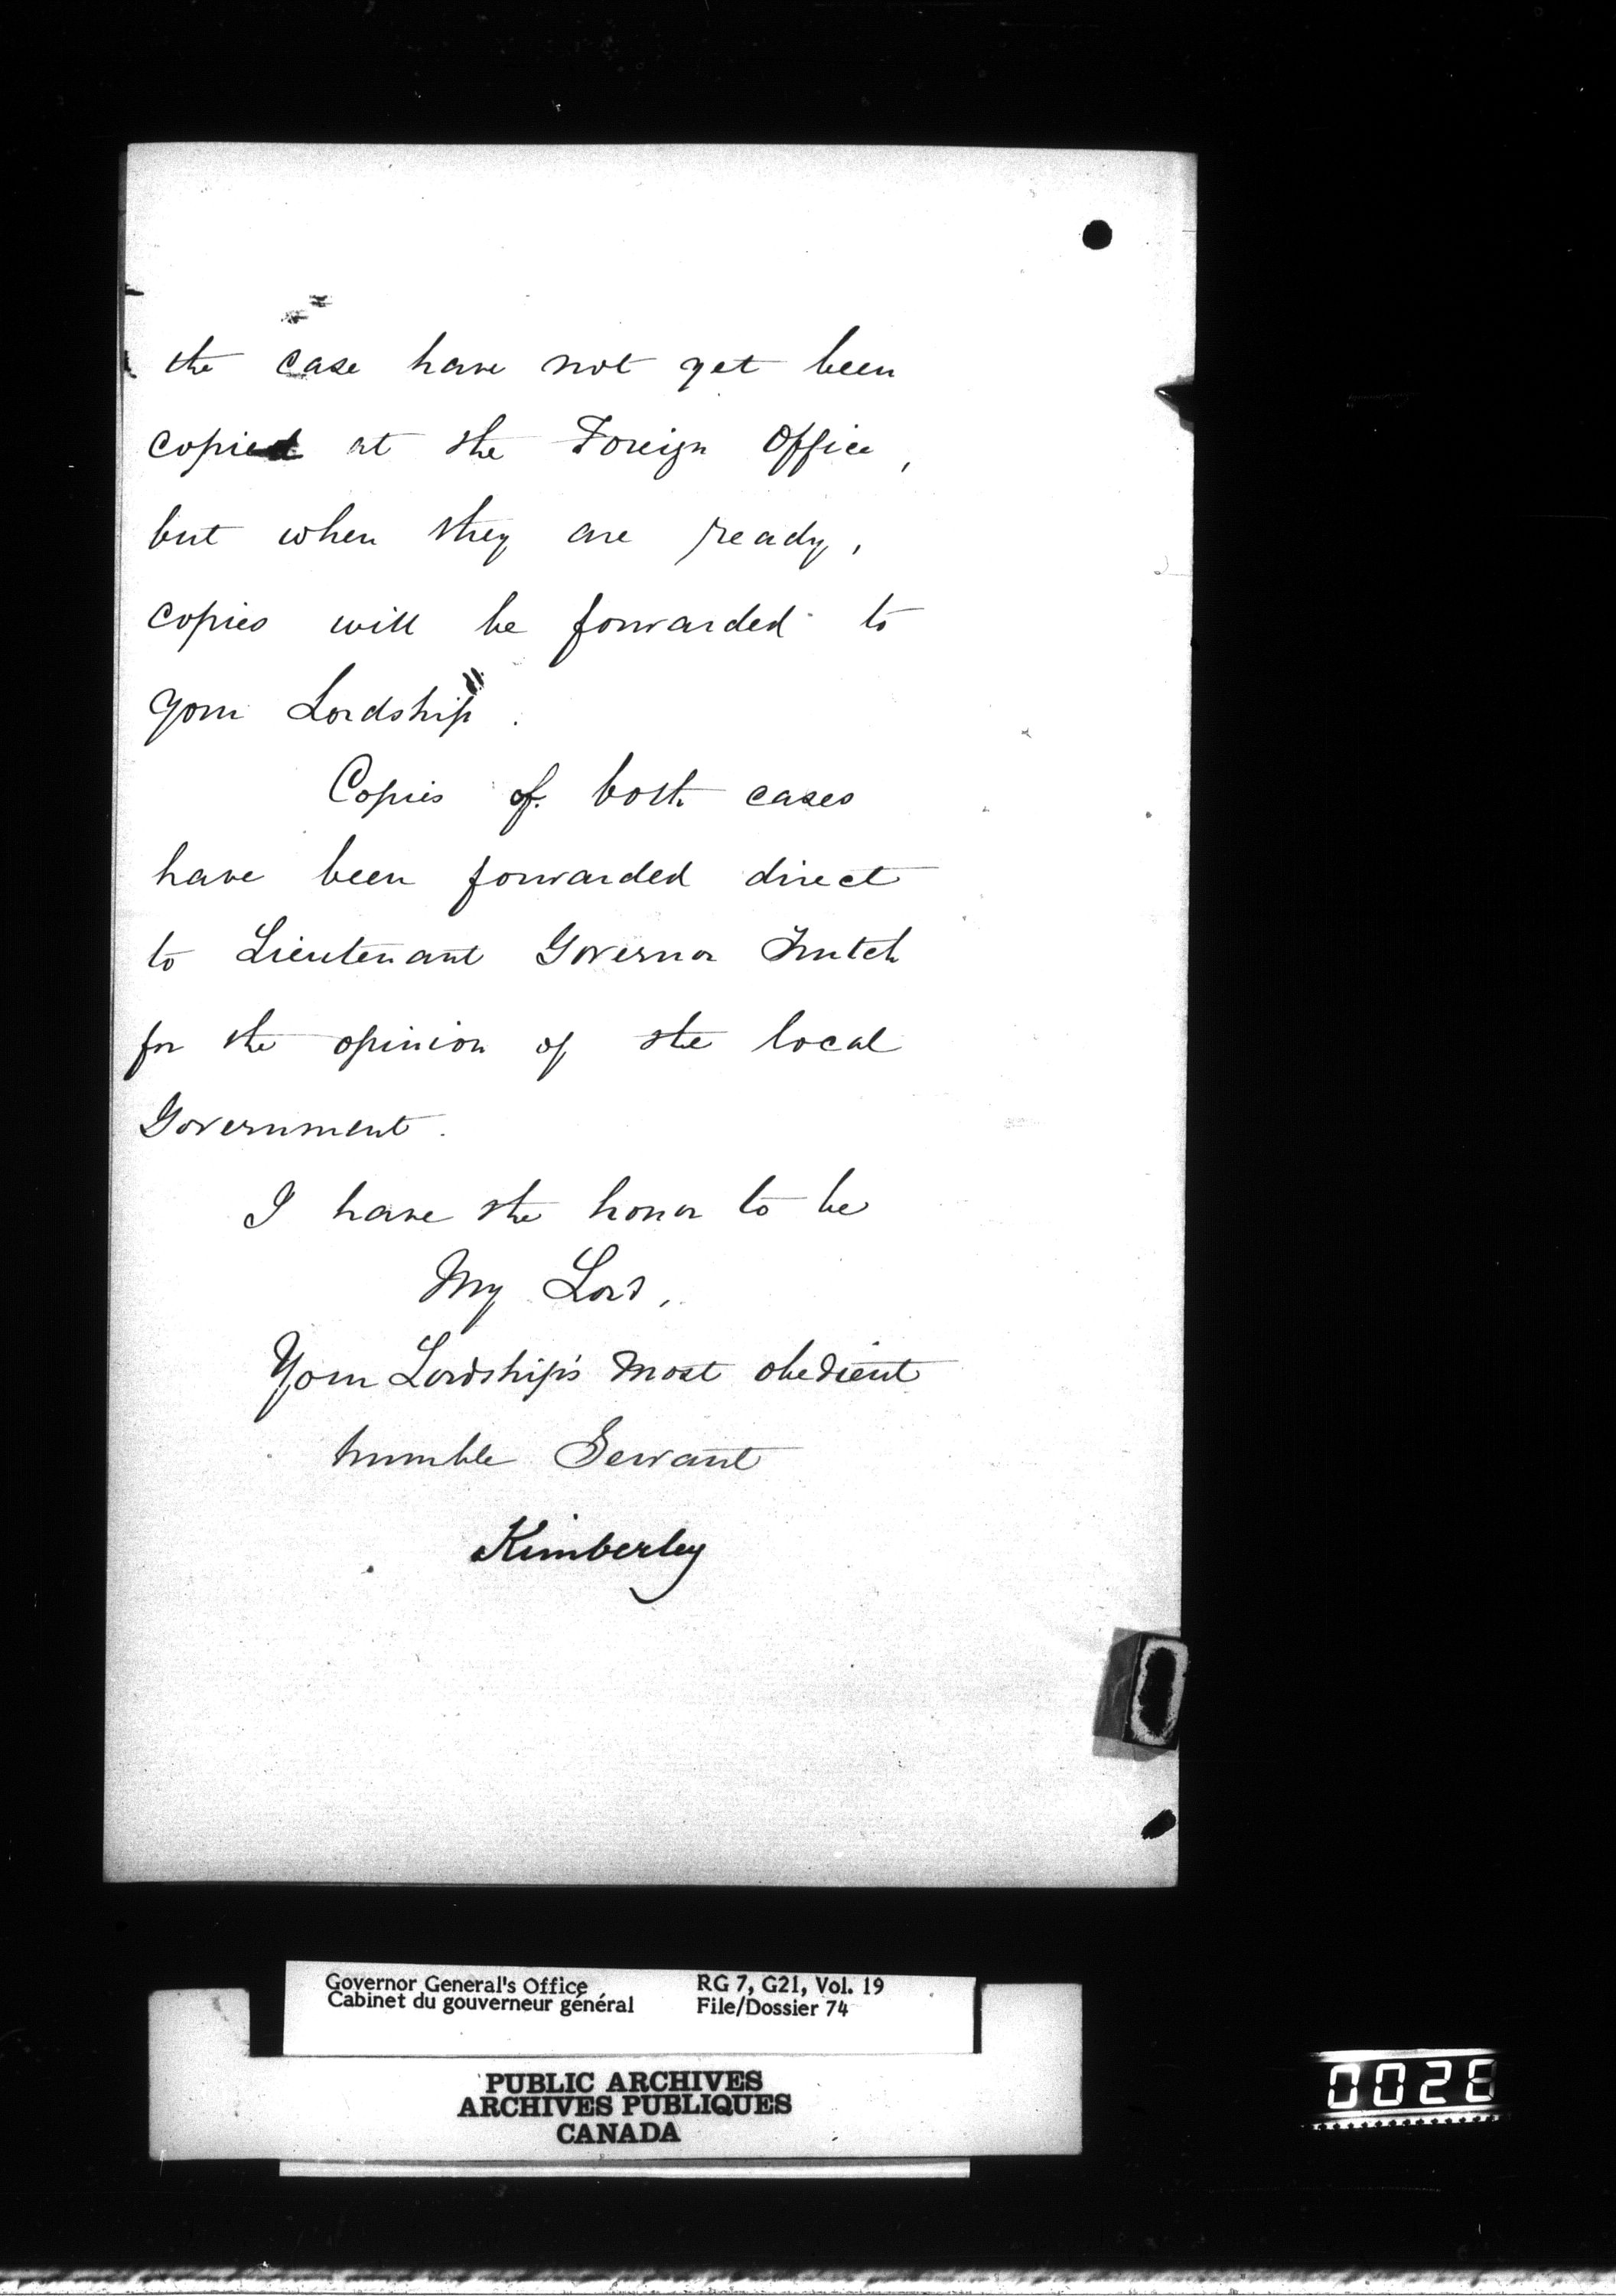 the case have not yet been
copied at the Foreign Office,
but when they are ready,
copies will be forwarded to
your Lordship.
Copies of both cases
have been forwarded direct
to Lieutenant Governor Trutch
for the opinion of the local
Government.
I have the honor to be
My Lord,
Your Lordship's most obedient
humble Servant
Kimberley
Governor General's Office
Cabinet du gouverneur général
RG 7, G21, Vol. 19
File/Dossier 74
PUBLIC ARCHIVES
ARCHIVES PUBLIQUES
CANADA